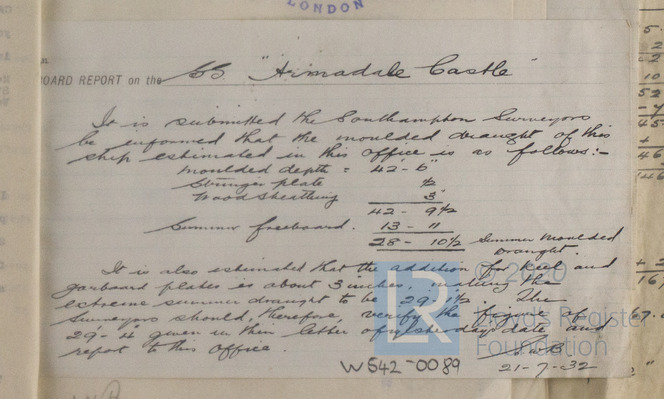 LONDON
BOARD REPORT on the SS "Armadale Castle"
It is submitted the Southampton Surveyors
be informed that the moulded draught of this
ship estimated in this office is as follows:-
Moulded depth = 42'-6"
Stringer plate ½
Wood Sheathing 3"
42 - 9½
Summer freeboard. 13 - 11
28 - 10½ Summer Moulded
Draught.
It is also estimated that the addition for keel and
garboard plates is about 3 inches, making the
extreme summer draught to be 29' 1½ The
Surveyors should, therefore, verify the figure of
29'-4" given in their letter of yesterday's date and
report to this office
21-7-32
W542-0089
© 2020
LR
Lloyd's Register
Foundation